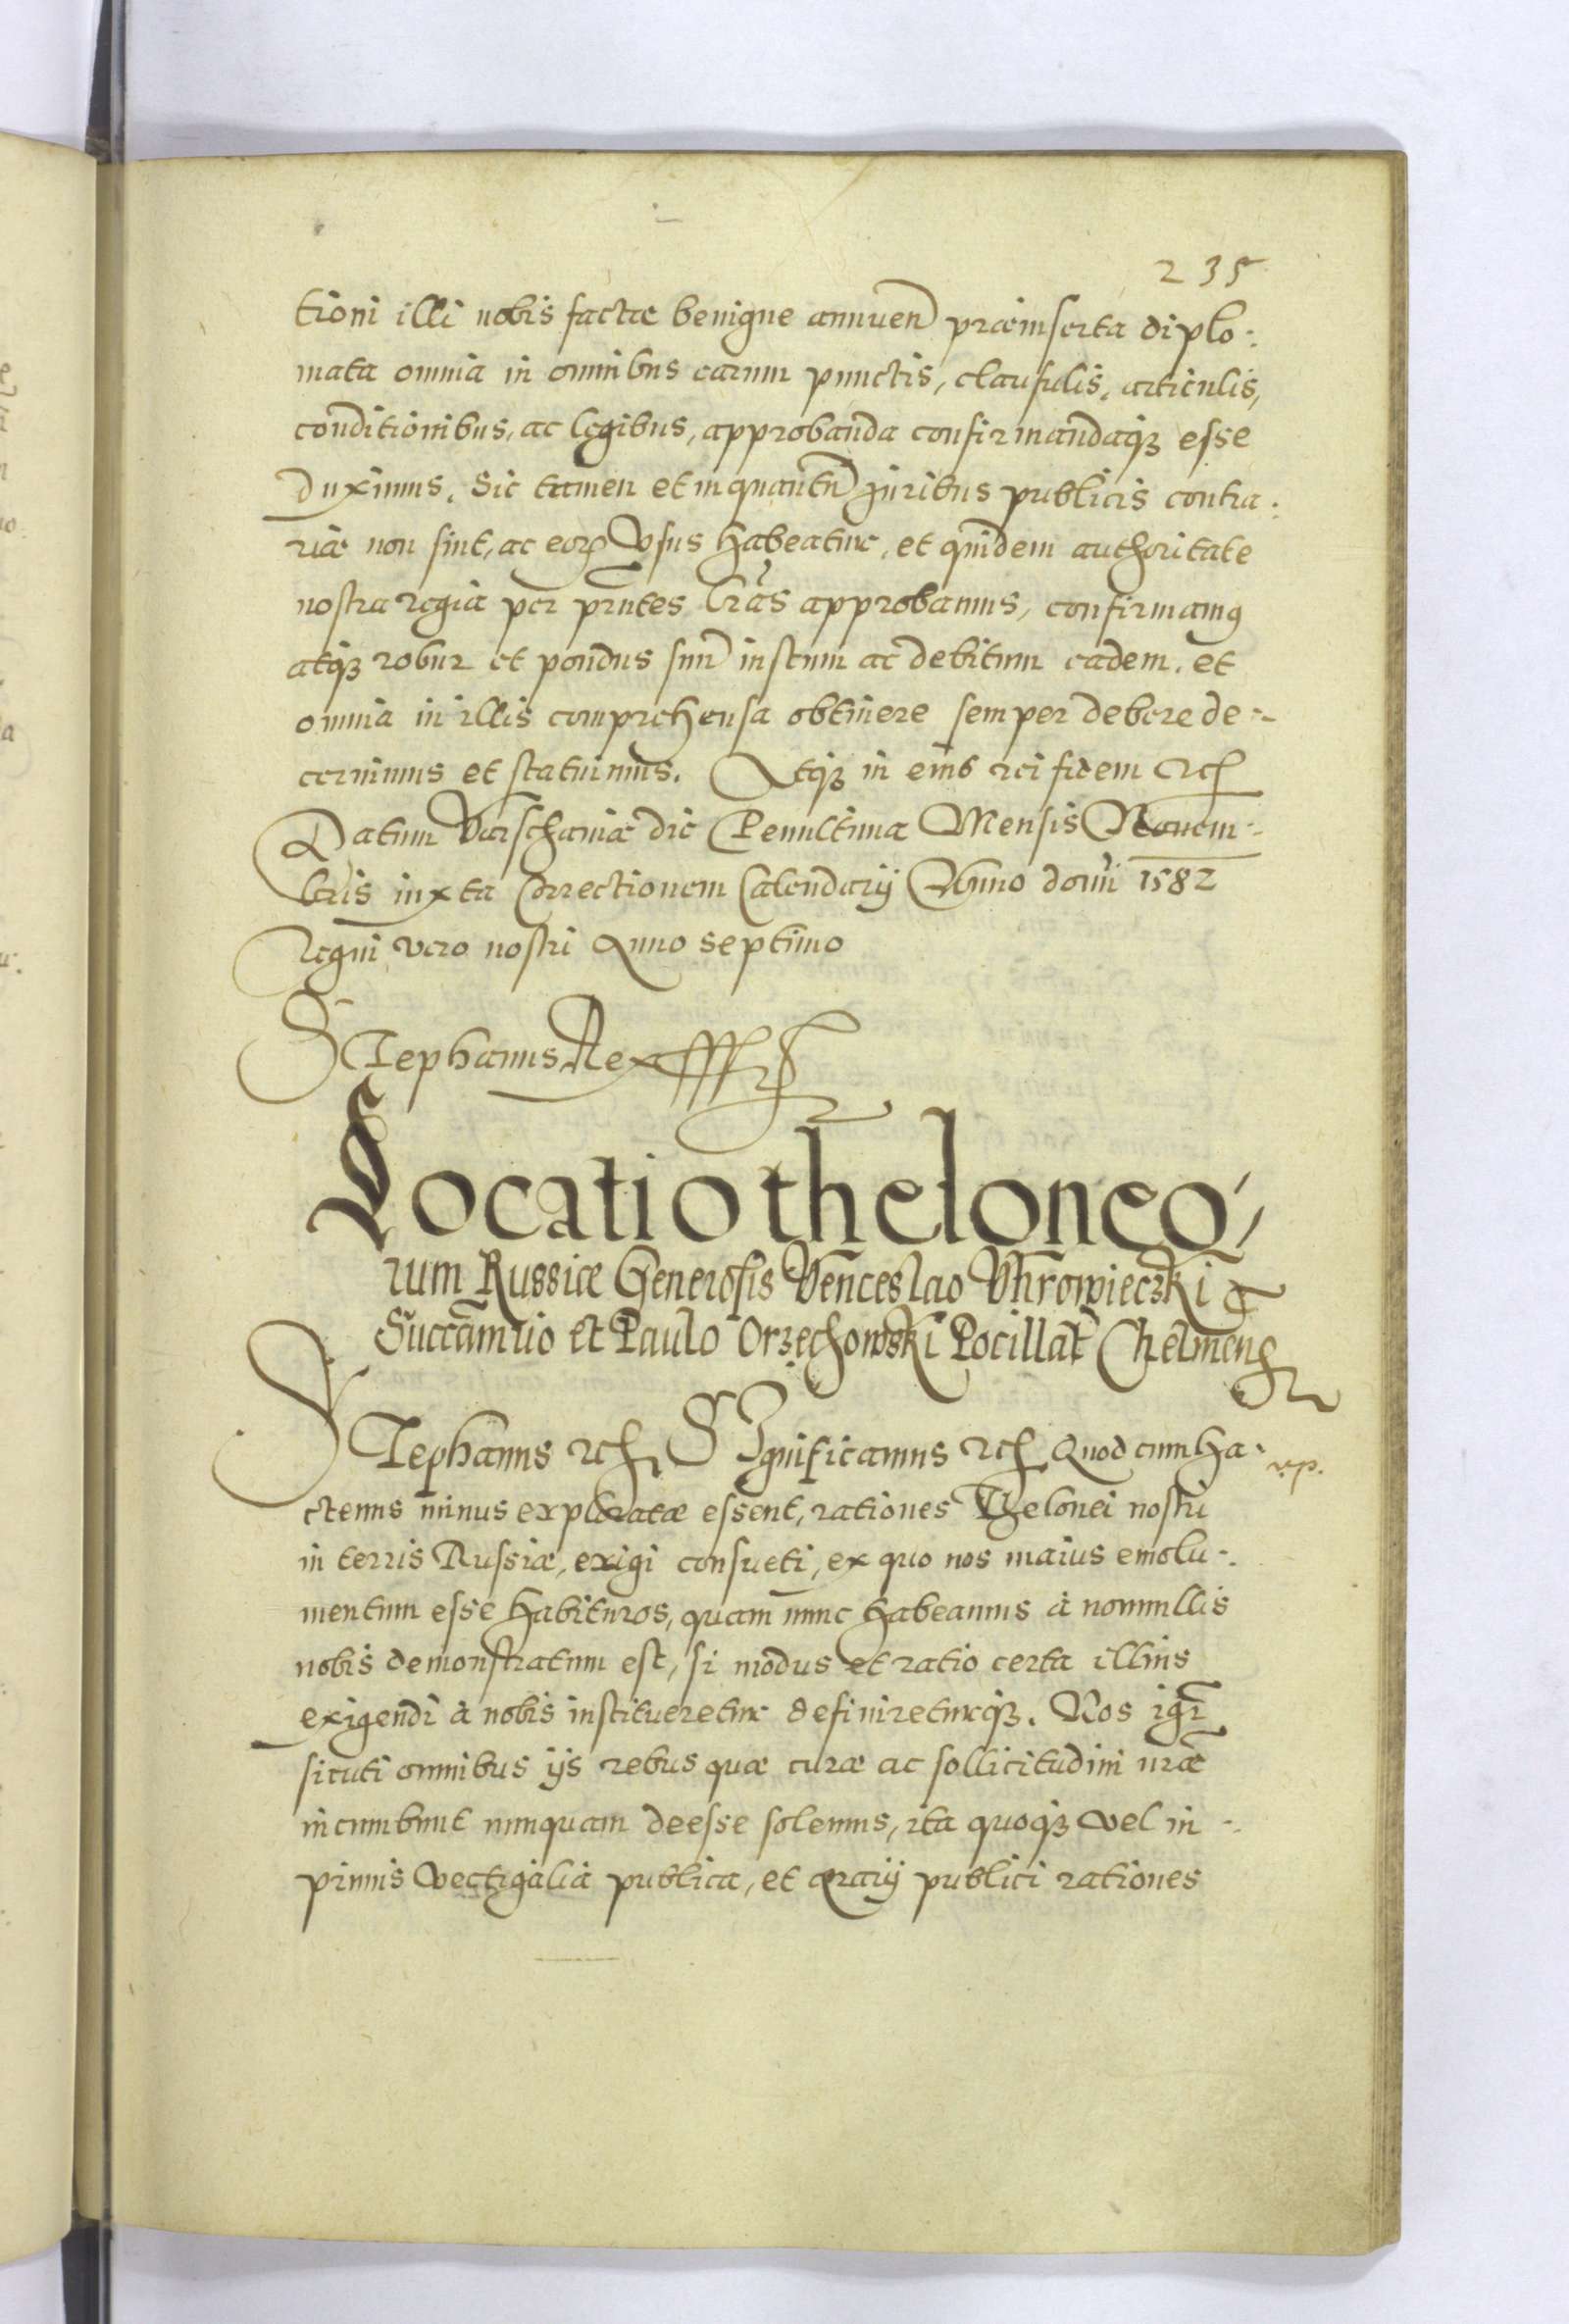 235
tioni illi nobis factae benigne annuen̄ praeinserta diplo-
mata omnia in omnibus earum punctis, clausulis, articulis,
conditionibus, ac legibus, approbanda confirmandaq̃ esse
duximus. Sic tamen et inquantū juribus publicis contra-
riae non sint, ac eorꝝ Vsus habeatur, et quidem authoritate
nostra regia per pr̄ntes l̄ras approbamus, confirmamꝰ
atqꝫ robur et pondus suū iustum ac debitum eadem, et
omnia in illis comprehensa obtinere semper debere de-
cernimus et statuimus. Atqꝫ in eius rei fidem etc̄
Datum Varschaviae die Penultima Mensis Novem-
bris iuxta Correctionem Calendarij Anno domī 1582
Regni vero nostri Anno septimo
Stephanus Rex
Locatio theloneo-
rum Russiae Generosis Venceslao Vhrowieczki
Succam̄rio et Paulo Orzechowski Pocillat̄ Chelmenš
Stephanus etc̄ Significamus etc̄ Quod cum ha-
ctenus minus exploratae essent, rationes Thelonei nostri
in terris Russiae, exigi consueti, ex quo nos maius emolu-
mentum esse habituros, quam nunc habeamus à nonnullis
nobis demonstratum est, si modus et ratio certa illius
exigendi à nobis institueretur definireturqꝫ. Nos igr̄
sicuti omnibus ijs rebus quae curae ac sollicitudini nr̄ae
incumbunt nunquam deesse solemus, ita quoqꝫ vel in-
primis Vectigalia publica, et aerarij publici rationes